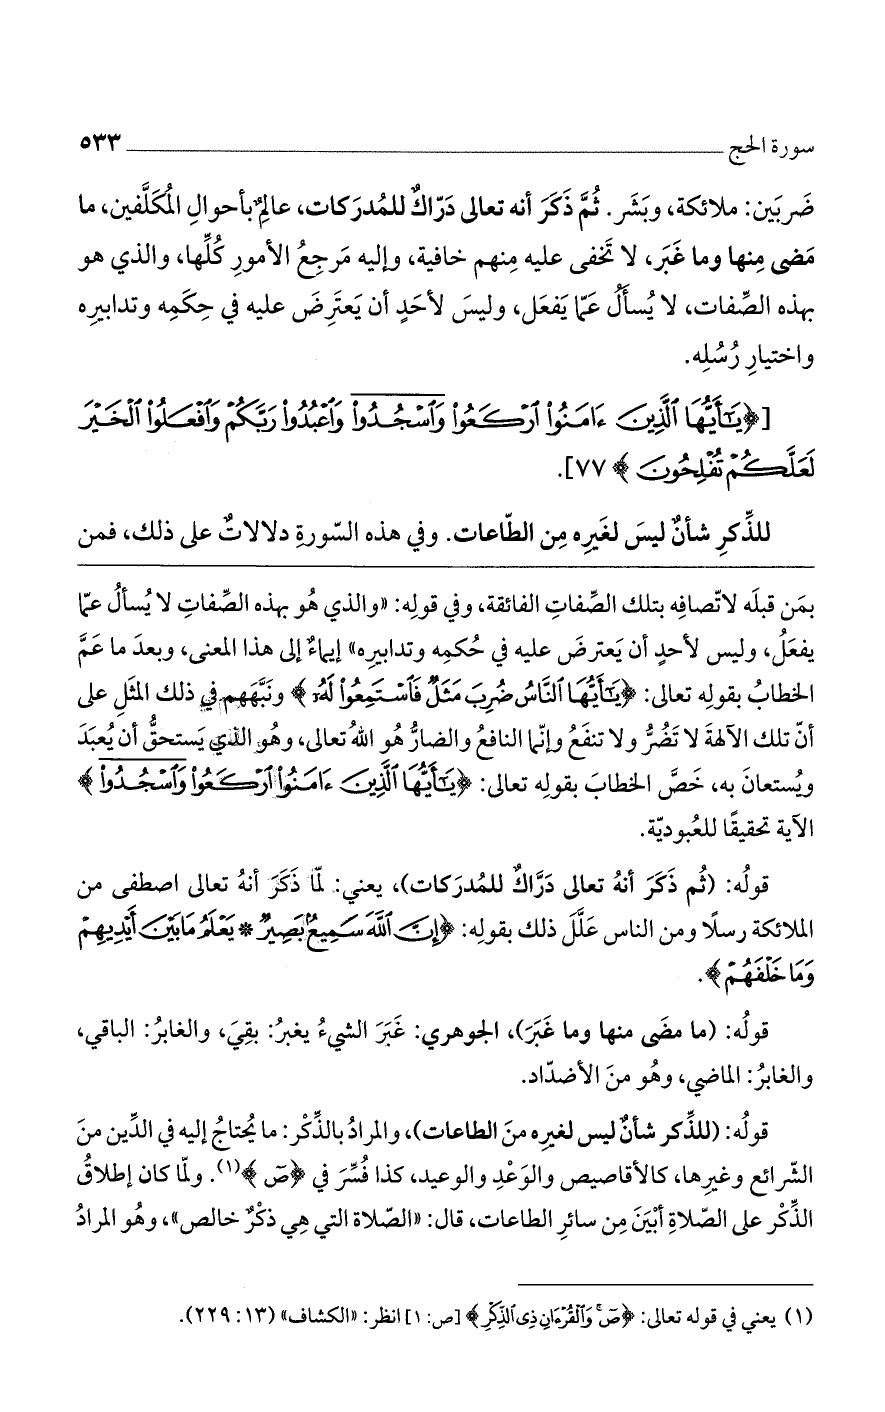 سورة الحج ٥٣٣
ضَربَين: ملائكة، وبَشَر. ثُمَّ ذَكَرَ أنه تعالى دَرّاكٌ للمُدرَكات، عالِمٌ بأحوالِ المُكلَّفين، ما
مَضى مِنها وما غَبَر، لا تَخفى عليه مِنهم خافية، وإليه مَرجِعُ الأمورِ كُلِّها، والذي هو
بهذه الصِّفات، لا يُسأَلُ عَمّا يَفعَل، وليسَ لأحَدٍ أن يَعتَرِضَ عليه في حِكَمِه وتدابيرِه
واختيارِ رُسُلِه.
[﴿يَٰٓأَيُّهَا ٱلَّذِينَ ءَامَنُوا۟ ٱرْكَعُوا۟ وَٱسْجُدُوا۟ وَٱعْبُدُوا۟ رَبَّكُمْ وَٱفْعَلُوا۟ ٱلْخَيْرَ
لَعَلَّكُمْ تُفْلِحُونَ﴾ ٧٧].
للذِّكرِ شأنٌ ليسَ لغَيرِه مِن الطّاعات. وفي هذه السّورةِ دلالاتٌ على ذلك، فمن
بمَن قبلَه لاتّصافِه بتلك الصِّفاتِ الفائقة، وفي قولِه: «والذي هُو بهذه الصِّفاتِ لا يُسألُ عمّا
يفعَلُ، وليس لأحدٍ أن يَعترضَ عليه في حُكمِه وتدابيرِه» إيماءٌ إلى هذا المعنى، وبعدَ ما عَمَّ
الخطابُ بقولِه تعالى: ﴿يَٰٓأَيُّهَا ٱلنَّاسُ ضُرِبَ مَثَلٌ فَٱسْتَمِعُوا۟ لَهُۥٓ﴾ ونَبَّهَهم في ذلك المثَلِ على
أنّ تلك الآلهةَ لا تَضُرُّ ولا تنفَعُ وإنّما النافعُ والضارُّ هُو اللهُ تعالى، وهُو الذي يَستحقُّ أن يُعبَدَ
ويُستعانَ به، خَصَّ الخطابَ بقولِه تعالى: ﴿يَٰٓأَيُّهَا ٱلَّذِينَ ءَامَنُوا۟ ٱرْكَعُوا۟ وَٱسْجُدُوا۟﴾
الآية تحقيقًا للعُبوديّة.
قولُه: (ثُم ذَكَرَ أنهُ تعالى دَرَّاكٌ للمُدرَكات)، يعني: لمّا ذَكَرَ أنهُ تعالى اصطفى من
الملائكة رسلًا ومن الناس عَلَّلَ ذلك بقولِه: ﴿إِنَّ ٱللَّهَ سَمِيعٌۢ بَصِيرٌ * يَعْلَمُ مَا بَيْنَ أَيْدِيهِمْ
وَمَا خَلْفَهُمْ﴾.
قولُه: (ما مضَى منها وما غَبَرَ)، الجوهري: غَبَرَ الشيءُ يغبرُ: بقِيَ، والغابرُ: الباقي،
والغابرُ: الماضي، وهُو منَ الأضدّاد.
قولُه: (للذِّكر شأنٌ ليس لغيرِه منَ الطاعات)، والمرادُ بالذِّكْر: ما يُحتاجُ إليه في الدِّين منَ
الشّرائع وغيرِها، كالأقاصيص والوَعْدِ والوعيد، كذا فُسِّرَ في ﴿صٓ﴾(١). ولمّا كان إطلاقُ
الذِّكْر على الصّلاةِ أبْيَنَ مِن سائرِ الطاعات، قال: «الصّلاة التي هِي ذكْرٌ خالص»، وهُو المرادُ
(١) يعني في قوله تعالى: ﴿صٓ وَٱلْقُرْءَانِ ذِى ٱلذِّكْرِ﴾ [ص: ١] انظر: «الكشاف» (١٣: ٢٢٩).